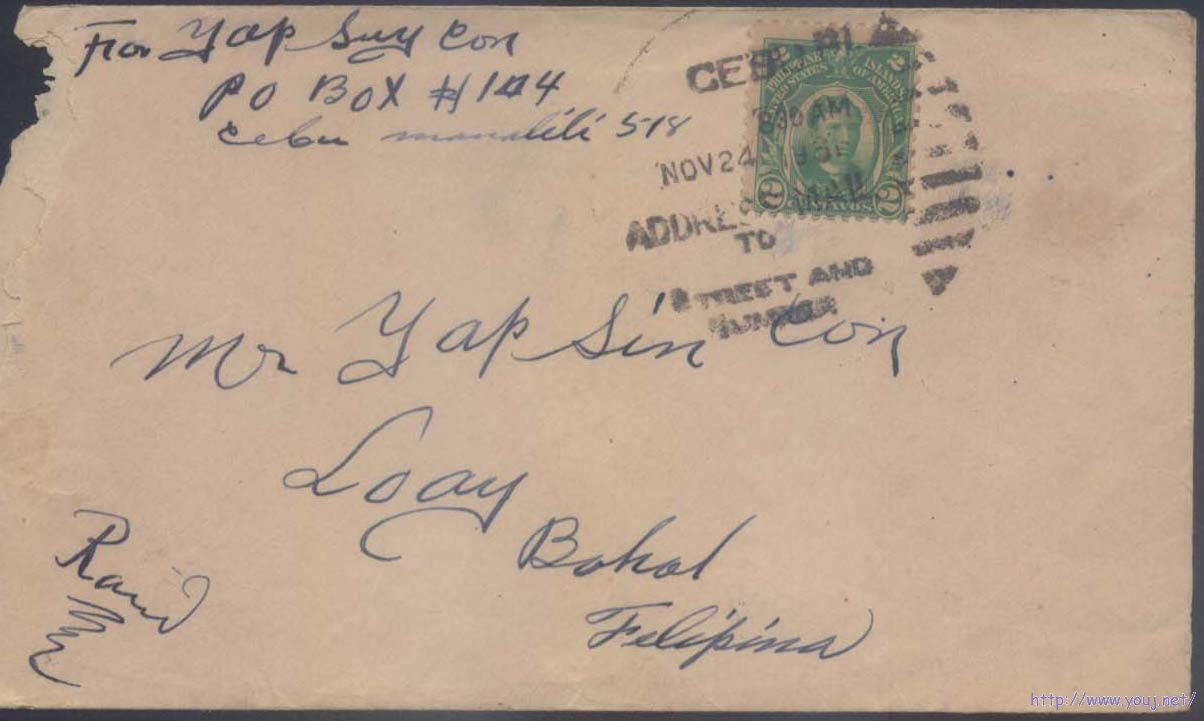 From Yap Suy Con
PO BOX #144
Cebu manalili 518
CEBU
AM
NOV 24
ADDRESS MAIL
TO
STREET AND
NUMBER
2 2
PHILIPPINE ISLANDS
UNITED STATES OF AMERICA
2 2
Mr Yap Sin Con
Loay
Bohol
Felipina
http://www.youj.net/